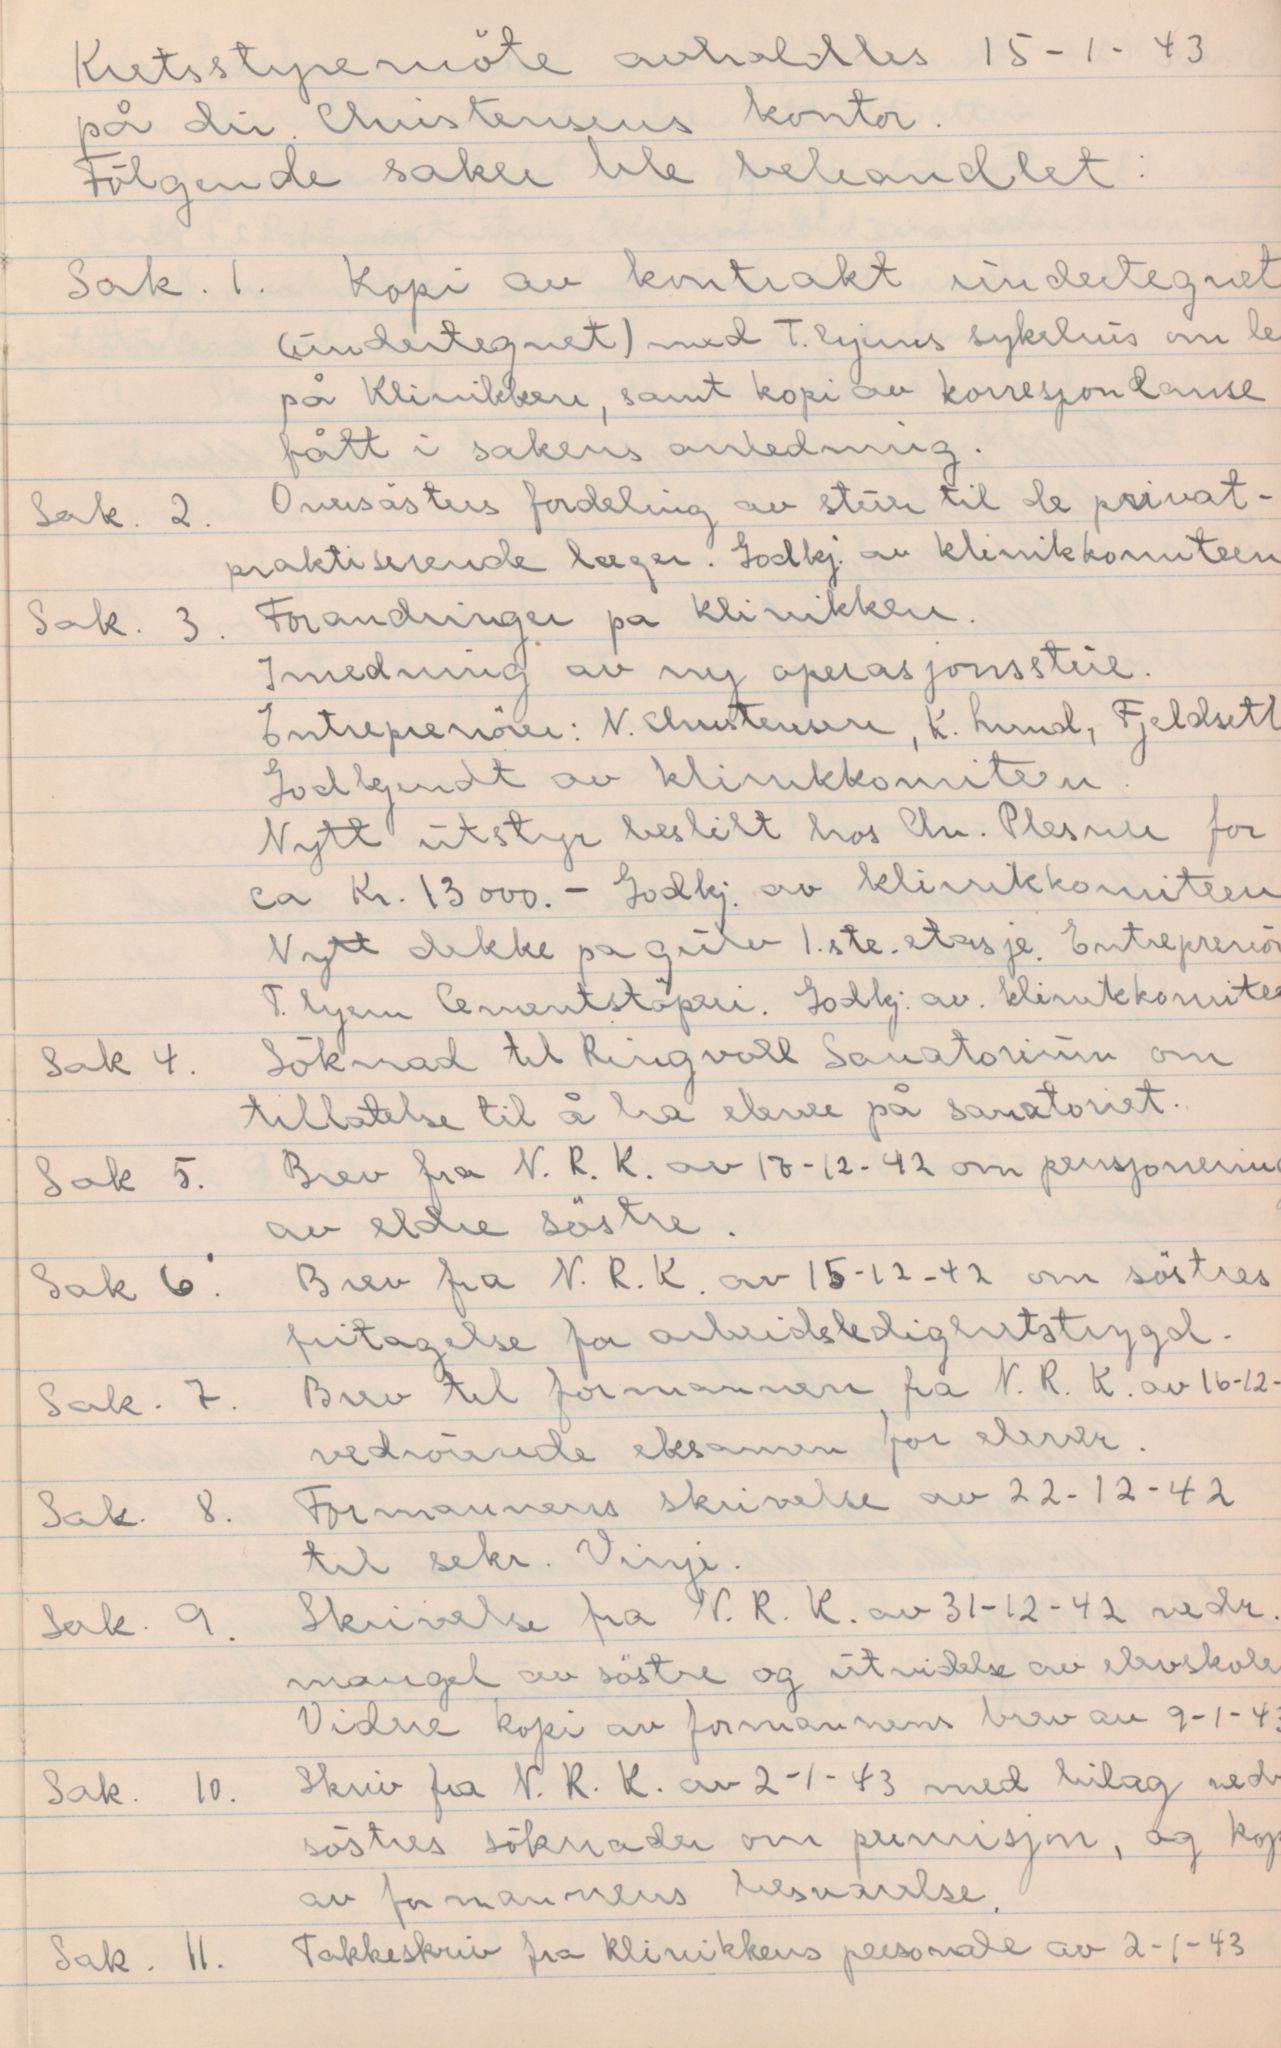 Kretsstyremöte avholdtes 15-1-43
på dir. Christensens kontor.
Fölgende saker ble behandlet:
Sak. 1. Kopi av kontrakt undertegnet
(undertegnet) med T. hjems sykehus om le
på Klinikken, samt kopi av korrespondanse
fått i sakens anledning.
Sak. 2. Oversösters fordeling av stuer til de privat-
praktiserende læger. Godkj. av klinikkomiteen
Sak. 3. Forandringer pa klinikken.
Inredning av ny operasjonsstue.
Entreprenörer: N. Christensen, K. Lund, Fjeldseth
Godkjendt av klinikkomiteen.
Nytt utstyr bestilt hos Chr. Plesner for
ca Kr. 13000.- Godkj. av klinikkomiteen
Nytt dekke pa gulv 1.ste. etasje. Entreprenör
T. hjem Cementstöperi. Godkj. av. klinikkomitee
Sak 4. Söknad til Ringvoll Sanatorium om
tillatelse til å ha elever på sanatoriet.
Sak 5. Brev fra N. R. K. av 18-12-42 om pensjonering
av eldre söstre.
Sak 6. Brev fra N. R. K. av 15-12-42 om söstres
fritagelse for arbeidsledighetstrygd.
Sak. 7. Brev til formannen fra N. R. K. av 16-12-
vedrörende eksamen for elever.
Sak. 8. Formannens skrivelse av 22-12-42
til sekr. Vinje.
Sak. 9. Skrivelse fra N. R. K. av 31-12-42 vedr.
mangel av söstre og utvidelse av elevskolen
Vidre kopi av formannens brev av 9-1-43
Sak. 10. Skriv fra N. R. K. av 2-1-43 med bilag vedr
söstres söknader om permisjon, og kop
av formannens besvarelse.
Sak. 11. Takkeskriv fra Klinikkens personale av 2-1-43